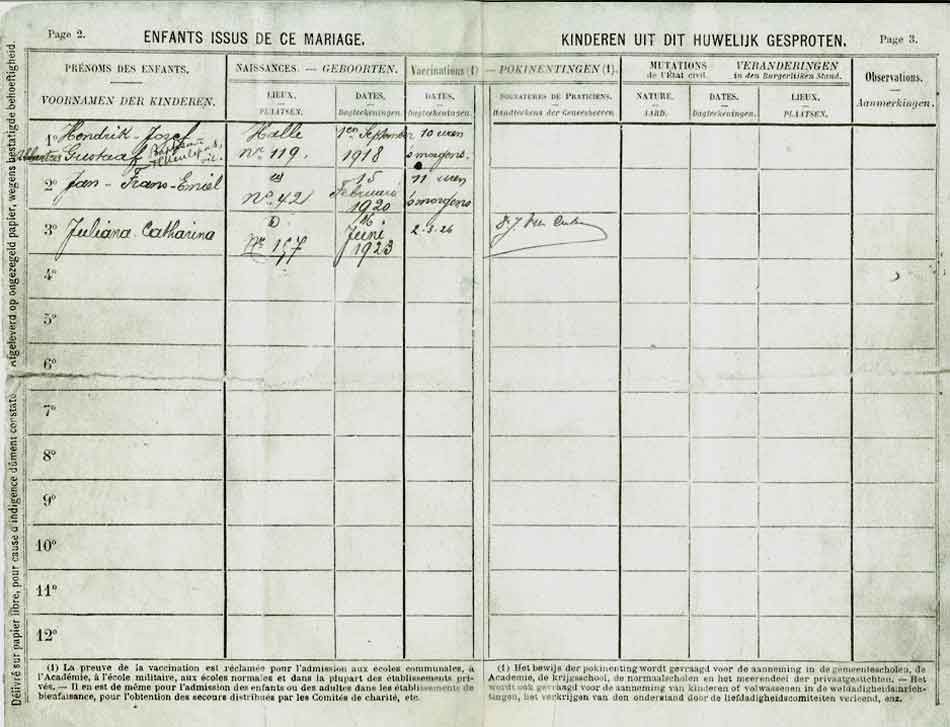 Page 2.
ENFANTS ISSUS DE CE MARIAGE.
KINDEREN UIT DIT HUWELIJK GESPROTEN.
Page 3.
PRÉNOMS DES ENFANTS.
VOORNAMEN DER KINDEREN.
NAISSANCES. — GEBOORTEN.
LIEUX.
PLAATSEN.
DATES.
Dagteekeningen.
Vaccinations (1)
DATES.
Dagteekeningen.
— POKINENTINGEN (1).
SIGNATURES DE PRATICIENS.
Handteekens der Geneesheeren
MUTATIONS
de l'État civil.
VERANDERINGEN
in den Burgerlijken Stand.
NATURE.
AARD.
DATES.
Dagteekeningen.
LIEUX.
PLAATSEN.
Observations.
Aanmerkingen.
1° Hendrik-Jozef
Gustaaf
Halle
n° 119.
1en September
1918
10 uren
's morgens.
2° Jan-Frans-Emiel
n° 42
15
Februari
1920
11 uren
's morgens
3° Juliana Catharina
D
N° 157
16
Juni
1923
2-3-26
4°
5°
6°
7°
8°
9°
10°
11°
12°
Délivré sur papier libre, pour cause d'indigence dûment constaté. Afgeleverd op ongezegeld papier, wegens bestatigde behoeftigheid.
(1) La preuve de la vaccination est réclamée pour l'admission aux écoles communales, à
l'Académie, à l'école militaire, aux écoles normales et dans la plupart des établisements pri-
vés. — Il en est de même pour l'admission des enfants ou des adultes dans les établissements de
bienfaisance, pour l'obtention des secours distribués par les Comités de charité, etc.
(1) Het bewijs der pokinenting wordt gevraagd voor de aanneming in de gemeentescholen, de
Academie, de krijgsschool, de normaalscholen en het meerendeel der privaatgestichten. — Het
wordt ook gevraagd voor de aanneming van kinderen of volwassenen in de weldadigheidsinrich-
tingen, het verkrijgen van den onderstand door de liefdadigheidscomiteiten verleend, enz.